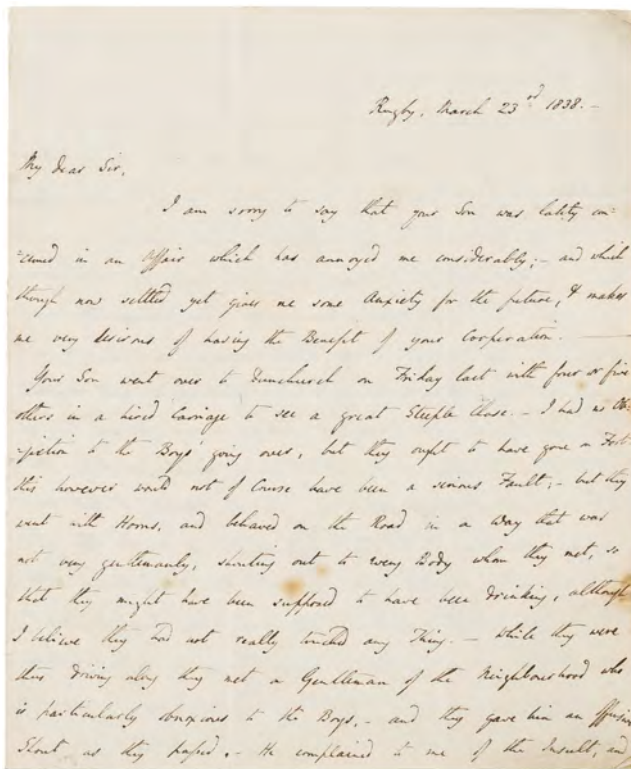 Rugby, March 23rd 1838.-
My dear Sir,
I am sorry to say that your Son was lately con=
=cerned in an Affair which has annoyed me considerably;- and which
though now settled yet gives me some Anxiety for the future, & makes
me very desirous of having the Benefit of your Cooperation. ——
Your Son went over to Dunchurch on Friday last with four or five
others in a hired Carriage to see a great Steeple Chase.- I had no Ob=
=jection to the Boys' going over, but they ought to have gone on Foot:
this however would not of Course have been a serious Fault;- but they
went with Horns, and behaved on the Road in a Way that was
not very gentlemanly, shouting out to every Body whom they met, so
that they might have been supposed to have been drinking, although
I believe they had not really touched any Thing.- While they were
thus driving along they met a Gentleman of the Neighbourhood who
is particularly obnoxious to the Boys,- and they gave him an offensive
Shout as they passed.- He complained to me of the Insult, and